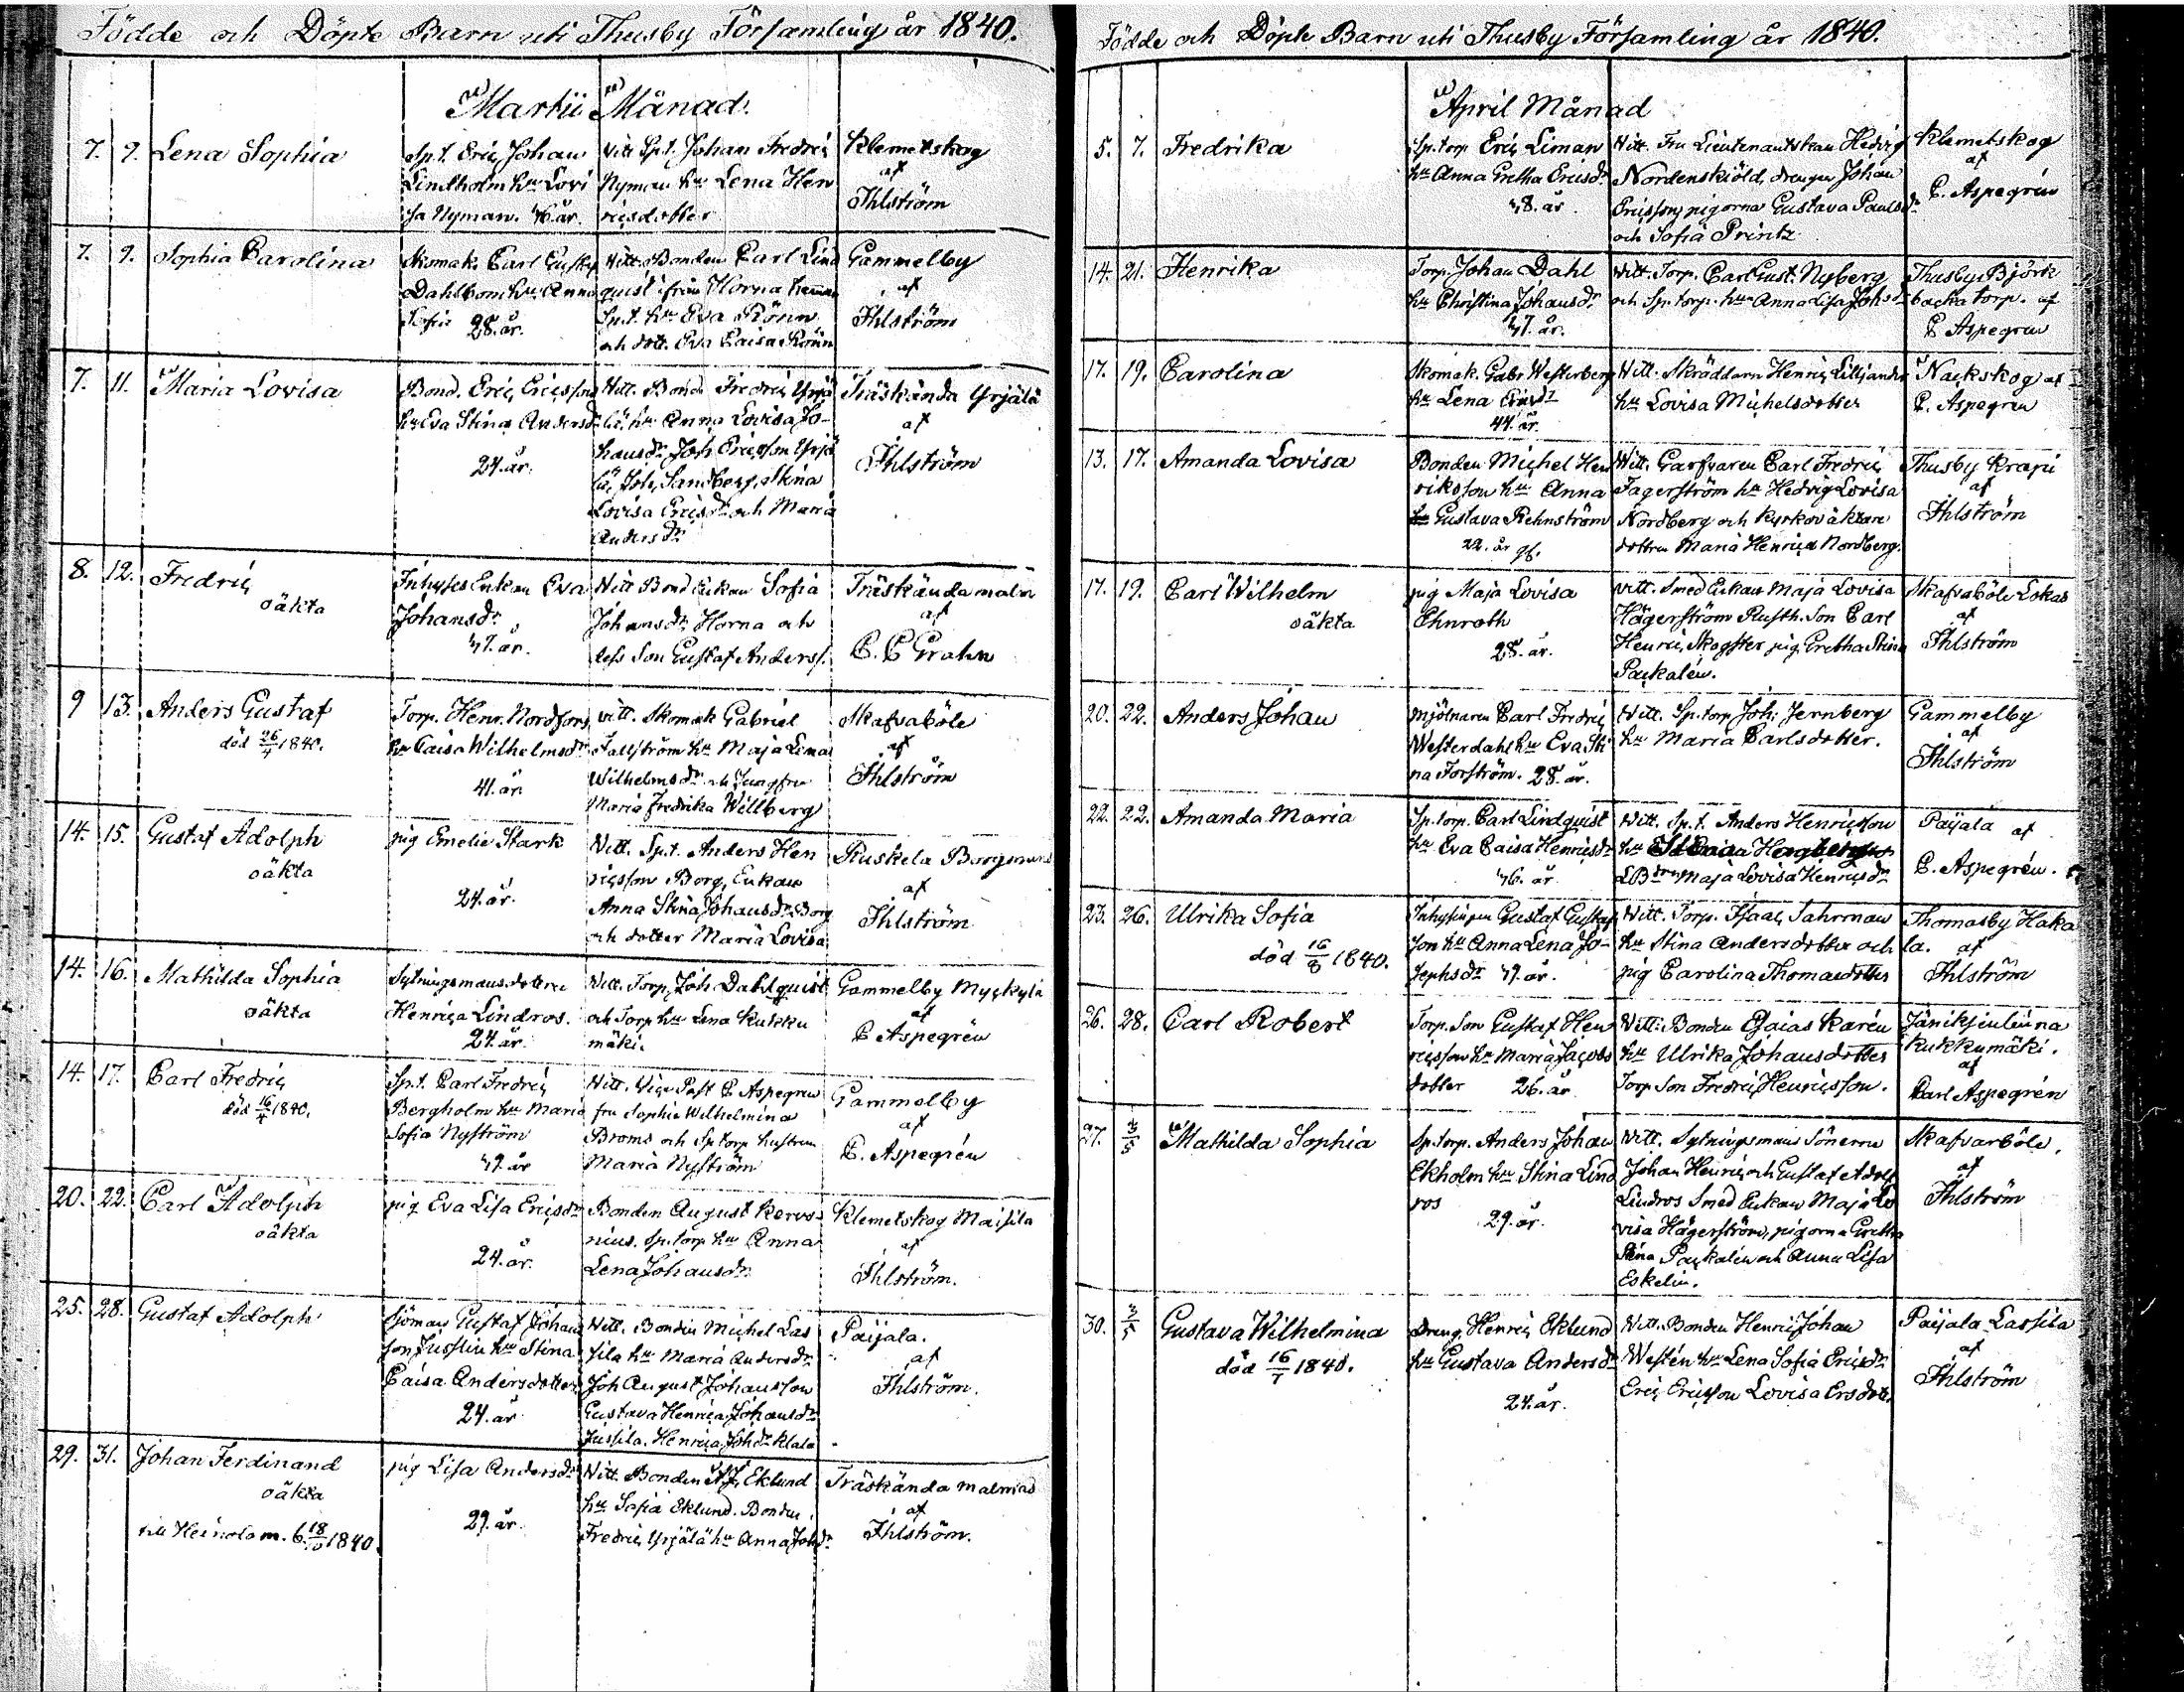 Födde och Döpte Barn uti Thusby Församling år 1840.
Martii Månad.
7. 9. Lena Sophia
Sp.t. Eric Johan
Lindholm hu Lovi
sa Nyman. 46. år.
Witt Sp.t. Johan Fredric
Nyman hu Lena Hen
ricsdotter
Klemetskog
af
Ihlström
7. 9. Sophia Carolina
Skomak. Carl Gustaf
Dahlbom hu Anna
Sofia 28. år.
Witt. Bonden Carl Lind
quist från Horna hemman
Sp.t. hu Eva Rönn
och dott. Eva Caisa Rönn
Gammelby
af
Ihlström
7. 11. Maria Lovisa
Bond. Eric Ericsson
hu Eva Stina Andersdr
24. år.
Witt. Bond Fredric Yrjä
lä hu Anna Lovisa Jo-
hansdr Joh Ericsson Yrjä
lä, Joh. Sandberg, Stina
Lovisa Ericsdr och Maria
Andersdr
Träskända Yrjälä
af
Ihlström
8. 12. Fredric
oäkta
Inhyses Enkan Eva
Johansdr
47. år.
Witt Bond Enkan Sofia
Johansdr Horna och
dess Son Gustaf Anderss.
Träskända malm
af
C. C Grahn
9 13. Anders Gustaf
död 26/4 1840.
Torp. Henr. Nordfors
hu Caisa Wilhelmsdr
41. år
vitt. Skomak Gabriel
Fallström hu Maja Lena
Wilhelmsdr och Jungfru
Maria Fredrika Willberg
Skafvaböle
af
Ihlström
14. 15. Gustaf Adolph
oäkta
pig Emelie Stark
24. år.
Witt. Sp.t. Anders Hen
ricsson Borg, Enkan
Anna Stina Johansdr Borg
och dotter Maria Lovisa
Ruskela Borgmans
af
Ihlström
14. 16. Mathilda Sophia
oäkta
Sytningsmans dottren
Henrica Lindros.
24. år
Witt. Torp. Joh Dahlquist
och Torp hu Lena Kukku
mäki.
Gammelby Myckylä
af
C Aspegrén
14. 17. Carl Fredric
död 16/4 1840.
Sp.t. Carl Fredric
Bergholm hu Maria
Sofia Nyström
49. år
Witt. Vice Past C Aspegren
fru Sophia Wilhelmina
Broms och Sp torp hustrun
Maria Nyström
Gammelby
af
C. Aspegrén
20. 22. Carl Adolph
oäkta
pig Eva Lisa Ericsdr
24. år.
Bonden August Kervo-
nius. Sp. torp hu Anna
Lena Johansdr
Klemetskog Maisila
af
Ihlström.
25. 28. Gustaf Adolph
Sjöman Gustaf Johans
son Jusslin hu Stina
Caisa Andersdotter
24. år
Witt. Bonden Michel Las
sila hu Maria Andersdr
Joh August Johansson
Gustava Henrica Johansdr
Jussila. Henrica Joh dr Klala
Paijala.
af
Ihlström.
29. 31. Johan Ferdinand
oäkta
till Heinola m. b. 18/10 1840.
pig Lisa Andersdr
29. år.
Witt. Bonden A J. Eklund
hu Sofia Eklund. Bonden
Fredric Yrjälä hu Anna Johdr
Träskända malmad
af
Ihlström.
Födde och Döpte Barn uti Thusby Församling år 1840.
April Månad
5. 7. Fredrika
Sp. torp Eric Liman
hu Anna Gretha Ericsdr
48. år
Witt. Fru Lieutenantskan Hedvig
Nordenskiöld, drengen Johan
Ericsson, pigorna Gustava Paulsdr
och Sofia Printz
Klemetskog
af
C. Aspegrén
14. 21. Henrika
Torp. Johan Dahl
hu Christina Johansdr
47. år.
Witt. Torp. Carl Gust. Nyberg
och Sp. torp. hu Anna Lisa Johsdr
Thusby Björk
backa torp. af
C Aspegren
17. 19. Carolina
Skomak. Gabr Westerberg
hu Lena Ericsdr
44. år.
Witt. Skräddarn Henric Lilljander
hu Lovisa Michelsdotter
Nackskog af
C. Aspegren
13. 17. Amanda Lovisa
Bonden Michel Hen
riksson hu Anna
Gustava Rehnström
22. år gl.
Witt. Garfvaren Carl Fredric
Fagerström hu Hedvig Lovisa
Nordberg och Kyrkoväktare
dottren Maria Henrica Nordberg.
Thusby Krapi
af
Ihlström
17. 19. Carl Wilhelm
oäkta
pig Maja Lovisa
Ehnroth
28. år.
vitt. Smed Enkan Maja Lovisa
Hägerström Rusth. Son Carl
Henric Skogster pig. Gretha Stina
Packalén.
Skafvaböle Lokas
af
Ihlström
20. 22. Anders Johan
Mjölnaren Carl Fredric
Westerdahl hu Eva Sti
na Forström. 28. år.
Witt. Sp. torp Joh: Jernberg
hu Maria Carlsdotter.
Gammelby
af
Ihlström
22. 22. Amanda Maria
Sp. torp. Carl Lindquist
hu Eva Caisa Henricsdr
46. år
Witt. Sp. t. Anders Henricsson
hu
Maja Lovisa Henricsdr
Paijala af
C. Aspegrén.
23. 26. Ulrika Sofia
död 16/8 1840.
Inhysingen Gustaf Gustaf
son hu Anna Lena Jo-
sephsdr 49. år.
Witt. Torp. Isaac Sahrman
hu Stina Andersdotter och
pig Carolina Thomasdotter
Thomasby Haka
la. af
Ihlström
26. 28. Carl Robert
Torp. Son Gustaf Hen
ricsson hu Maria Jacobs
dotter 26. år
Witt. Bonden Esaias Karén
hu Ulrika Johansdotter
Torp Son Fredric Henricsson.
Jäniksenlinna
Kukkumäki.
af
Carl Aspegrén
27. 3/5 Mathilda Sophia
Sp. torp. Anders Johan
Ekholm hu Stina Lind
ros
29. år.
Witt. Sytningsmans Sönerne
Johan Henric och Gustaf Adolf
Lindros Smed Enkan Maja Lo
visa Hägerström, pigorna Gretha
Stina Packalén och Anna Lisa
Eskelin.
Skafvarböle.
af
Ihlström
30. 3/5 Gustava Wilhelmina
död 16/7 1840.
Dreng. Henric Eklund
hu Gustava Andersdr
24. år.
Witt. Bonden Henric Johan
Westén hu Lena Sofia Ericsdr
Eric Ericsson Lovisa Ersdott.
Paijala Lassila
af
Ihlström